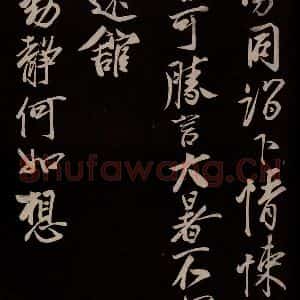 同詣下情悚
可勝言大暑不
還館
動靜何如想
Shufawang.CN